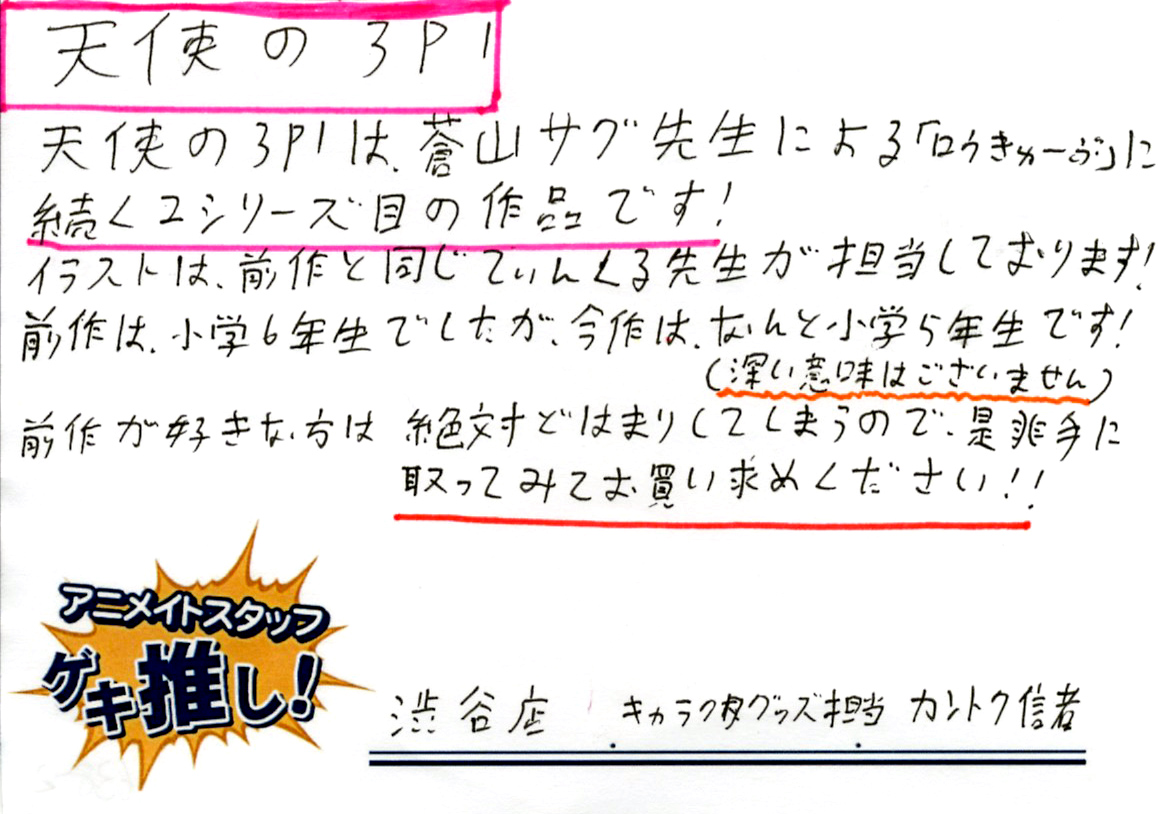 天使の3P!
天使の3P!は、蒼山サグ先生による「ロウきゅーぶ!」に
続く2シリーズ目の作品です!
イラストは、前作と同じてぃんくる先生が担当しております!
前作は、小学6年生でしたが、今作は、なんと小学5年生です!
(深い意味はございません)
前作が好きな方は 絶対どはまりしてしまうので、是非手に
取ってみてお買い求めください!!
アニメイトスタッフ
ゲキ推し!
渋谷店 キャラクタグッズ担当 カントク信者